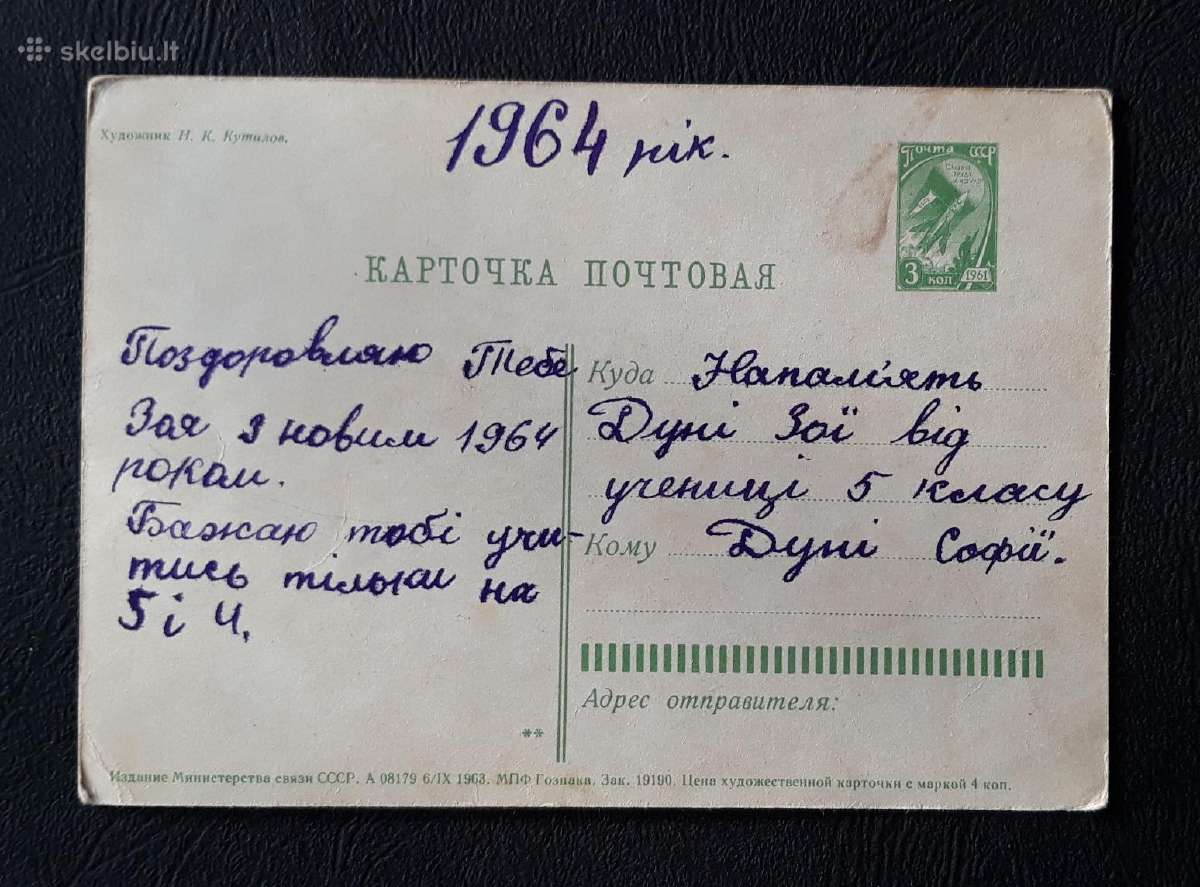 skelbiu.lt
Художник Н. К. Кутилов.
1964 рік.
Почта СССР
3 коп. 1961
КАРТОЧКА ПОЧТОВАЯ
Поздоровляю Тебе
Зоя з новим 1964
роком.
Бажаю тобі учи-
тись тільки на
5 і 4.
Куда Напам'ять
Дуні Зої від
учениці 5 класу
Кому Дуні Софії.
Адрес отправителя:
**
Издание Министерства связи СССР. А 08179 6/IX 1963. МПФ Гознака. Зак. 19190. Цена художественной карточки с маркой 4 коп.